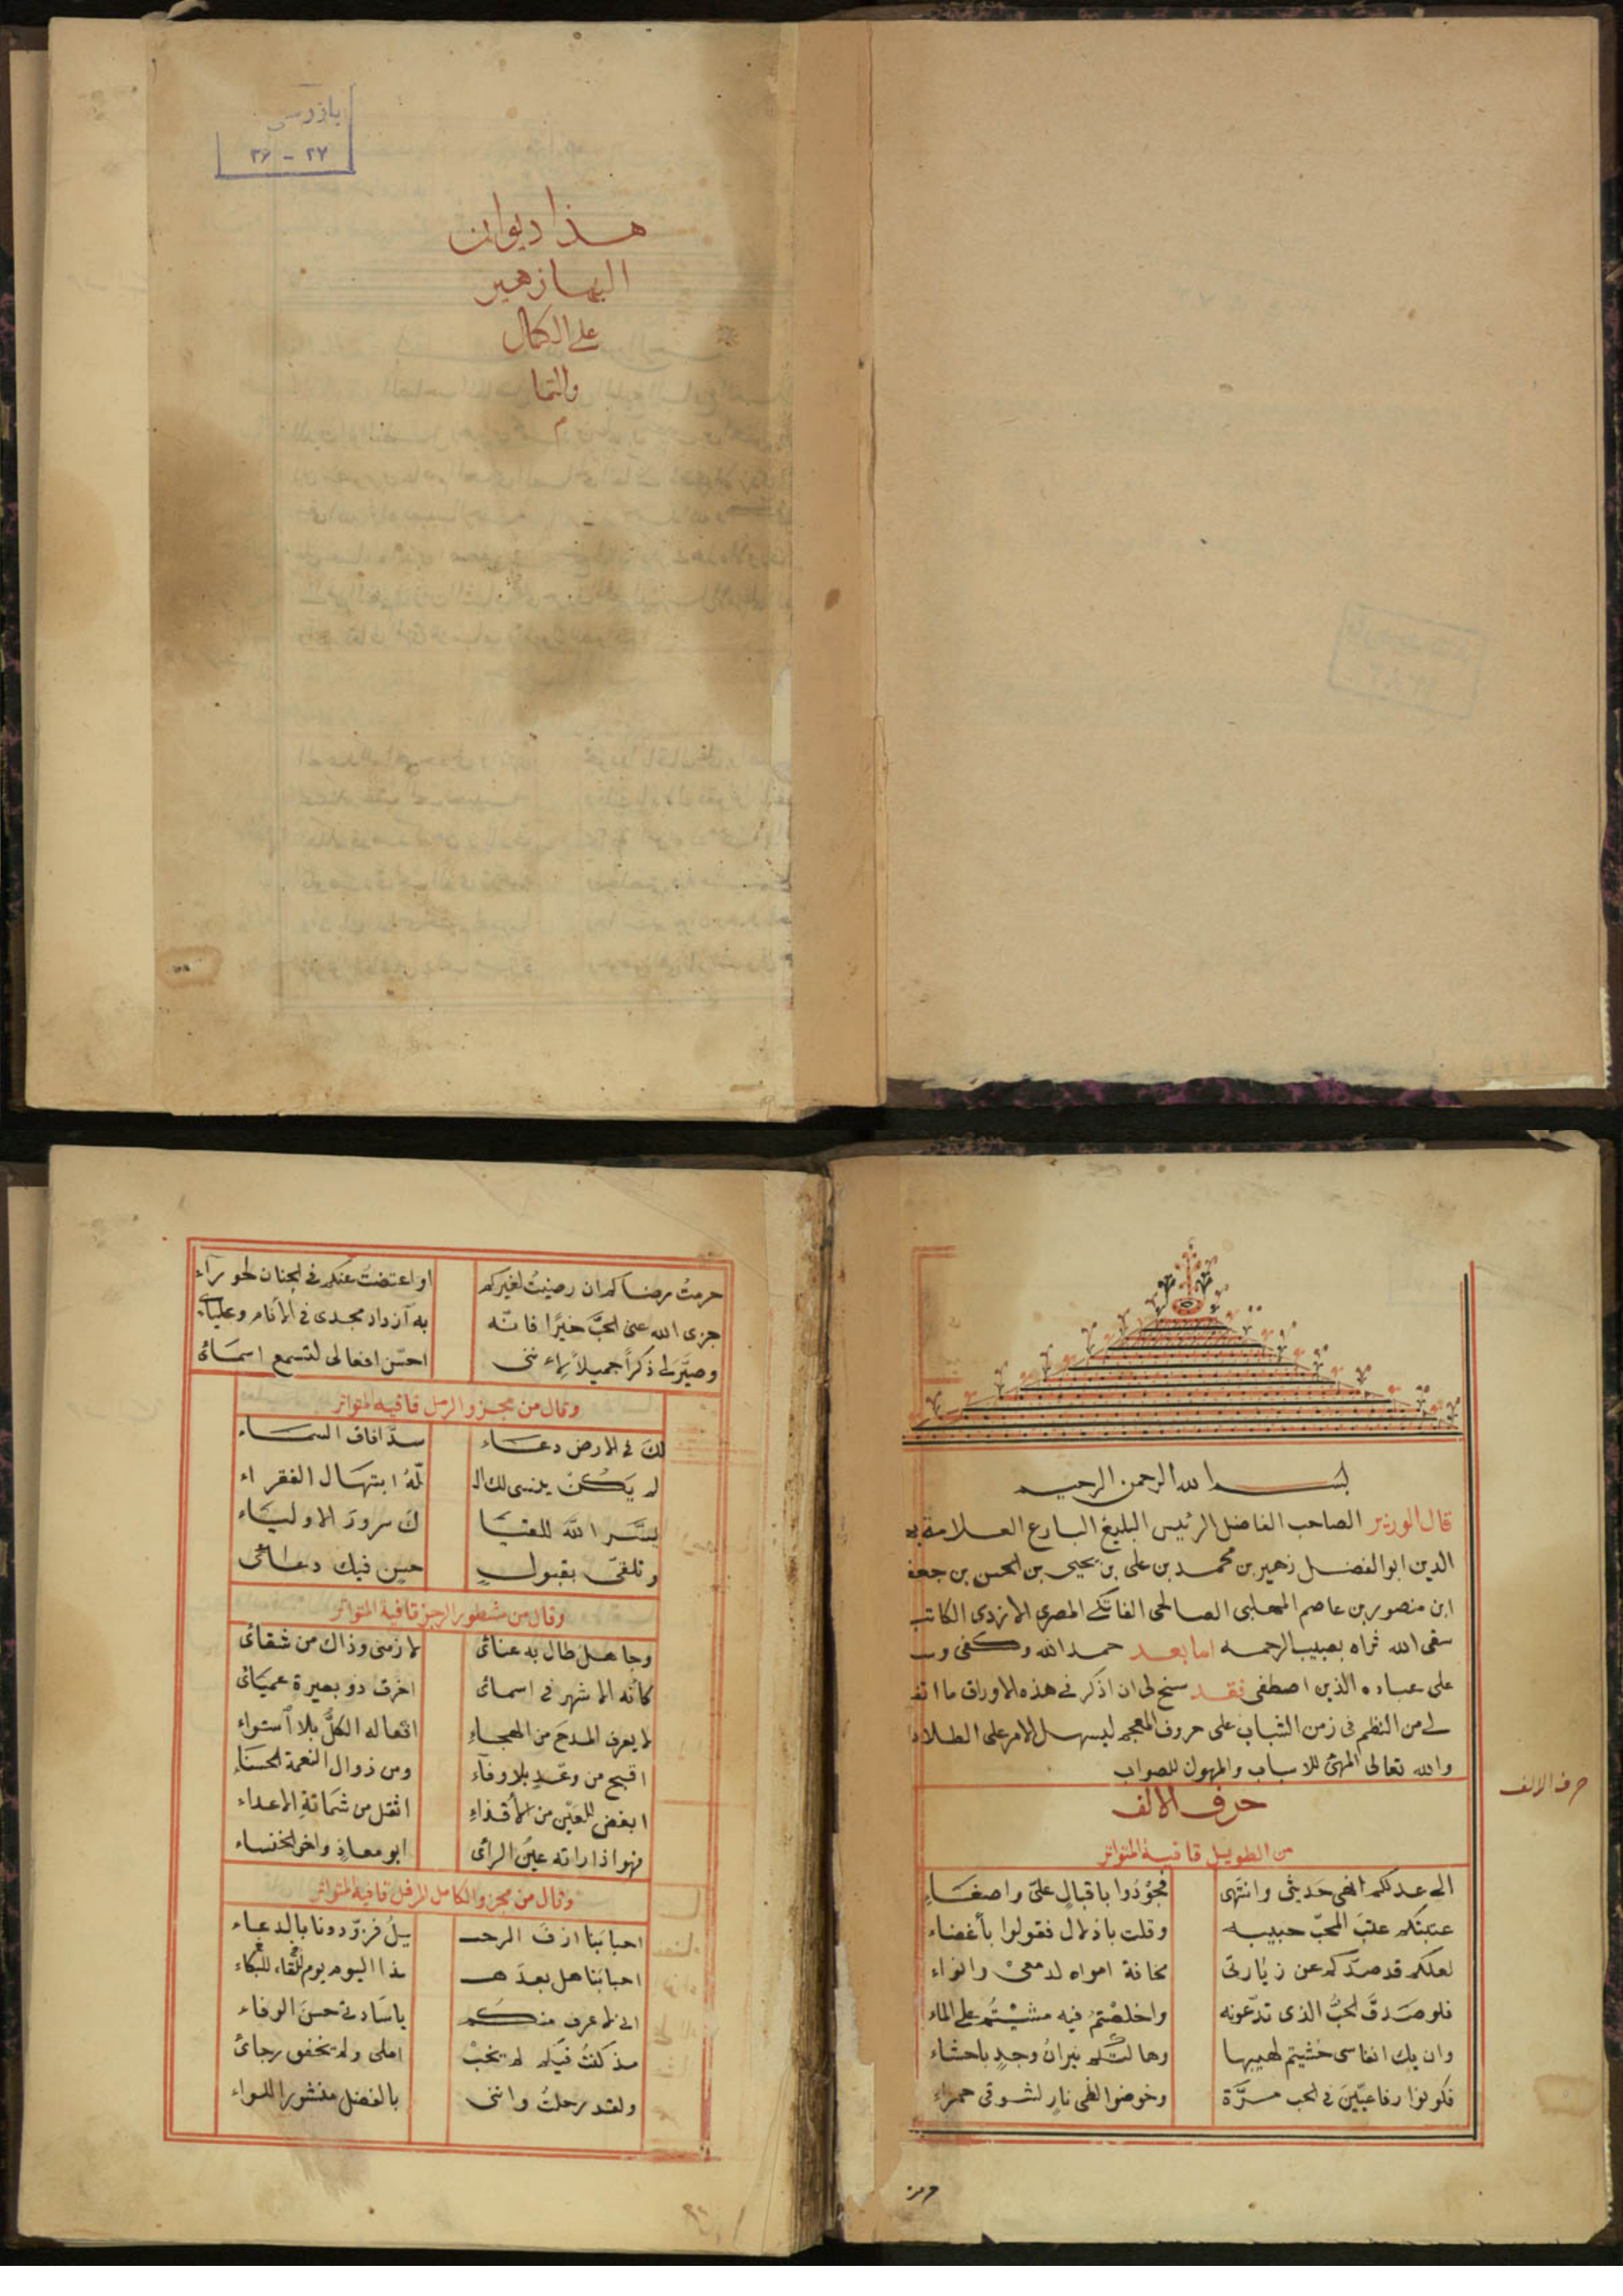 بازرسی
۲۷ - ۳۶
هذا ديوان
البها زهير
على الكمال
والتما
م
بسم الله الرحمن الرحيم
قال الوزير الصاحب الفاضل الرئيس البليغ البارع العلامة به
الدين ابو الفضل زهير بن محمد بن على بن يحيى بن الحسن بن جعف
ابن منصور بن عاصم المهلبى الصالحى الفاتكى المصرى الازدى الكاتب
سقى الله ثراه بصبيب الرحمه اما بعد حمد الله وكفى وس
على عباده الذين اصطفى فقد سنح لى ان اذكر فى هذه الاوراق ما اتف
لى من النظم فى زمن الشباب على حروف المعجم ليسهل الامر على الطلاب
والله تعالى المهيئ للاسباب والمهون للصواب
حرف الالف
حرف الالف
من الطويل قافية المتواتر
الى عدلكم انهى حديثى وانتهى فجودوا باقبال علىّ واصغاء
عتبتكم عتب المحبّ حبيبه وقلت باذلال فقولوا بأغضاء
لعلكم قد صدّكم عن زيارتى مخافة امواه لدمعى وانواء
فلو صدق الحبّ الذى تدّعونه واخلصتم فيه مشيتم على الماء
وان يك انفاسى خشيتم لهيبها وهالتكم نيران وجدٍ باحشاء
فكونوا رفاعيّين فى الحب مرّة وخوضوا لظى نار لشوقى حمراء
حرمز
حرمت رضاكم ان رضيت لغيركم او اعتضت عنكم فى الجنان لحوراء
جزى الله عنى الحبّ خيرًا فانّه به آزداد مجدى فى الانام وعلياء
وصيّر لى ذكرًا جميلاً لاننى احسّن افعالى لتسمع اسمائى
وقال من مجزو الرمل قافيه المتواتر
لك فى الارض دعاء سدّ افاق السماء
لم يكن ينسى لك ال لّه ابتهال الفقراء
يسّر الله للقيا ك سرور الاولياء
وتلقى بقبولٍ حسن فيك دعائى
وقال من مشطور الرجز قافية المتواتر
وجاهل طال به عنائى لازمنى وذاك من شقائى
كانّه الاشهر فى اسمائى اخرق ذو بصيرة عميائى
لا يعرف المدح من الهجاء افعاله الكلّ بلا آستواء
اقبح من وعدٍ بلا وفآء ومن زوال النعمة الحسناء
ابغض للعين من الأقذاء اثقل من شماتة الاعداء
فهو اذا راته عين الرائى ابو معاذ واخو الخنساء
وقال من مجزو الكامل المرفل قافية المتواتر
احبابنا ازف الرحـ يلُ فزوّدونا بالدعاء
احبابنا هل بعد هـ ذا اليوم يوم للقاء
انى لاعرف منكم يا سادتى حسن الوفاء
مذ كنت فيكم لم يخب املى ولم يخفق رجائى
ولقد رحلت واننى بالفضل منشور اللواء